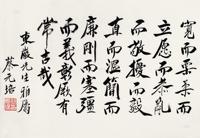 寬而栗柔而
立愿而恭亂
而敬擾而毅
直而溫簡而
廉剛而塞彊
而義彰厥有
常吉哉
東 先生雅屬
蔡元培